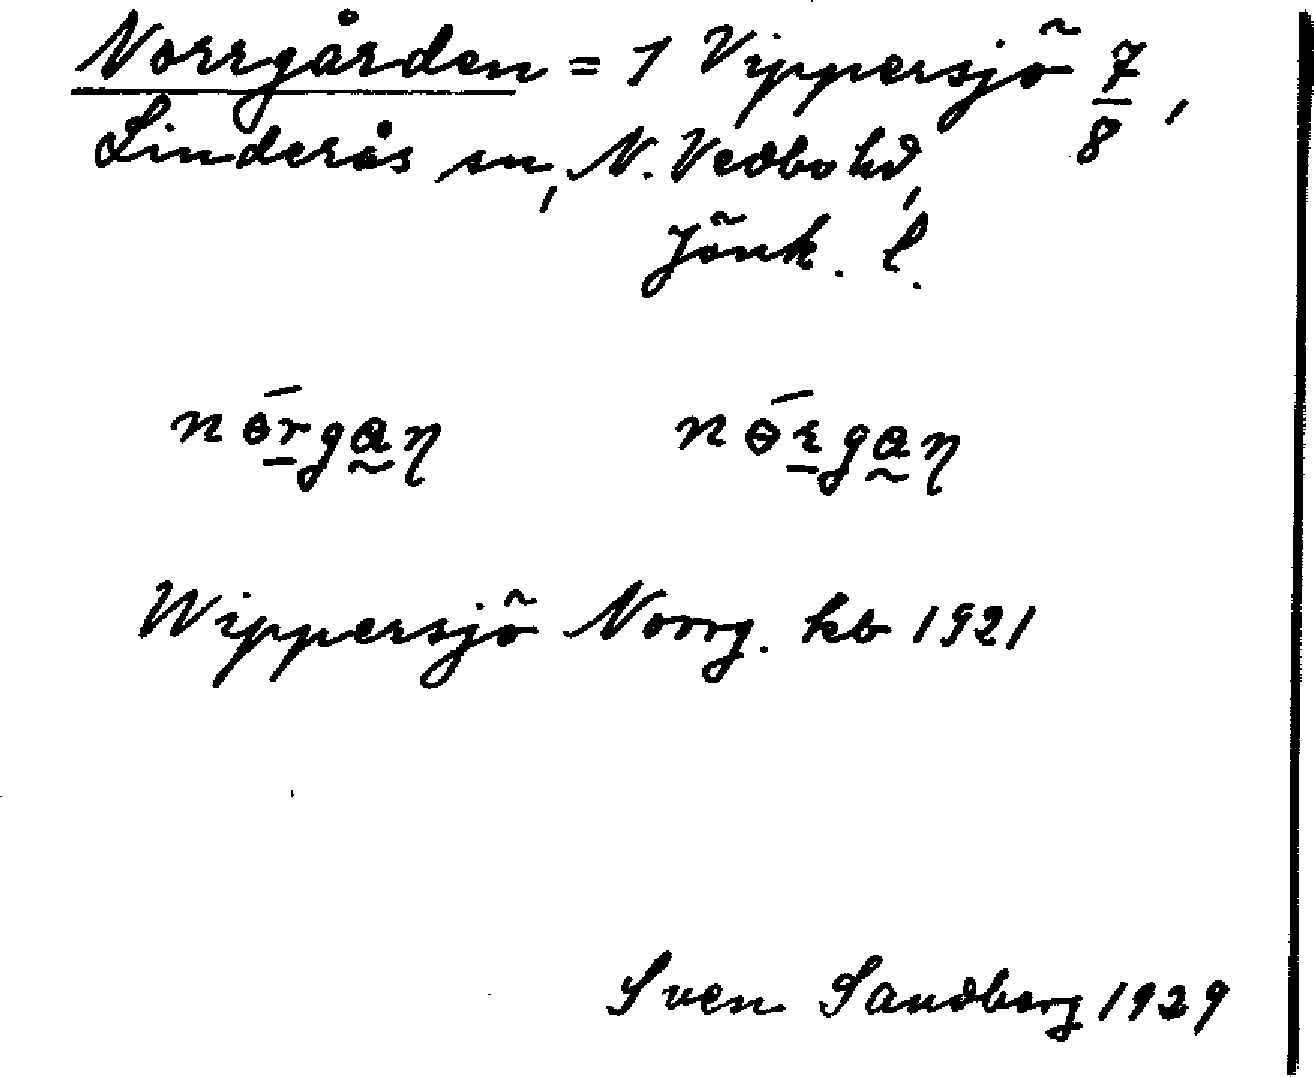 Norrgården = 1 Vippersjö 7/8,
Linderås sn, N. Vedbo hd,
Jönk. l.
nɵ́rgaŋ nɵ́rgaŋ
Wippersjö Norrg. kb 1921
Sven Sandberg 1929